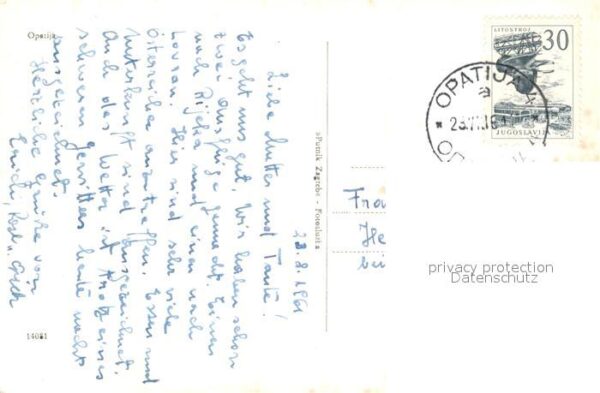 Opatija
23.8.1961
Liebe Mutter und Tante!
Es geht uns gut. Wir haben schon
zwei Ausflüge gemacht. Einen
nach Rijeka und einen nach
Lovran. Hier sind sehr viele
Österreicher anzutreffen. Essen und
Unterkunft sind ausgezeichnet.
Auch das Wetter ist trotz eines
schweren Gewitters heute nachts
ausgezeichnet.
Herzliche Grüße von
14081
»Putnik Zagreb« - Fotoslužba
LITOSTROJ
30
JUGOSLAVIJA
OPATIJA
Fra
He
bei
privacy protection
Datenschutz